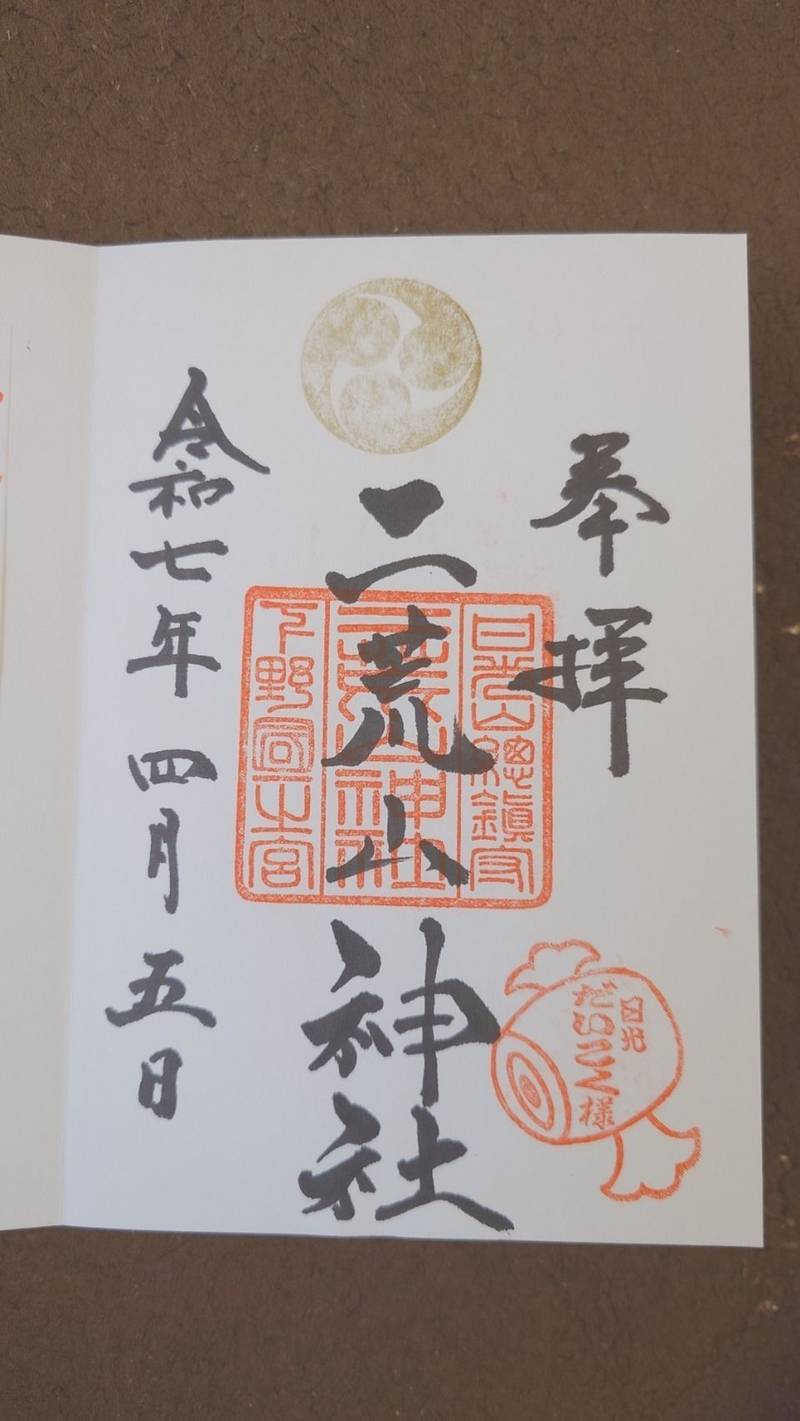 奉拝
日光山總鎮守
二荒山神社
二荒山神社
下野國一之宮
日光
だいこく様
令和七年四月五日